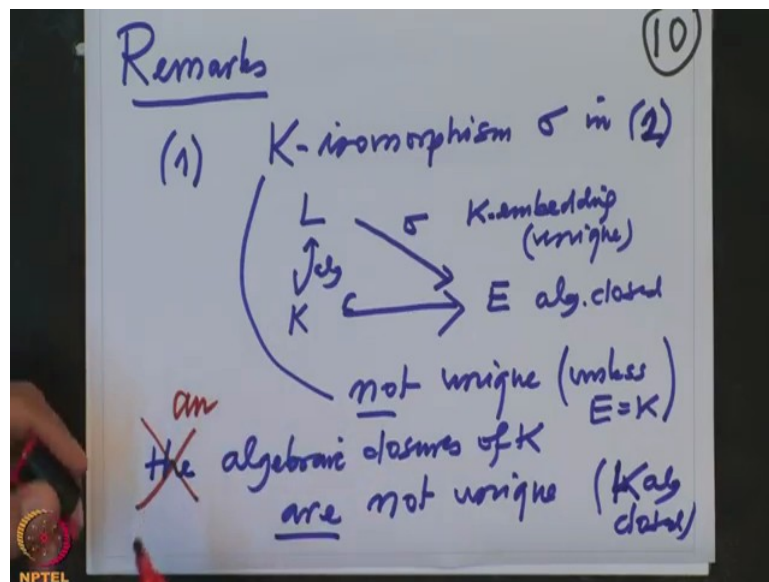 10
Remarks
(1) K-isomorphism σ in (2)
L σ K-embedding
(unique)
alg
K E alg. closed
not unique (unless
E=K)
an
the algebraic closures of K
are not unique (K alg
closed)
NPTEL